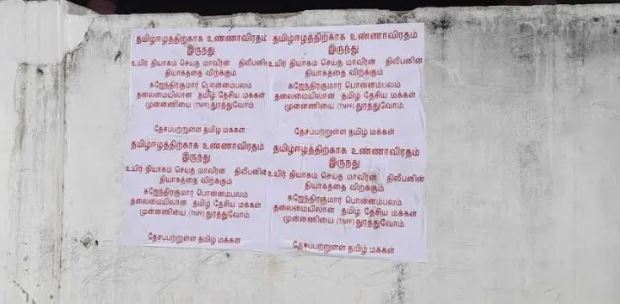 தமிழீழத்திற்காக உண்ணாவிரதம்
இருந்து
உயிர் தியாகம் செய்த மாவீரன் திலீபனின்
தியாகத்தை விற்கும்
கஜேந்திரகுமார் பொன்னம்பலம்
தலைமையிலான தமிழ் தேசிய மக்கள்
முன்னணியை (TNPF) துரத்துவோம்.
தேசப்பற்றுள்ள தமிழ் மக்கள்
தமிழீழத்திற்காக உண்ணாவிரதம்
இருந்து
உயிர் தியாகம் செய்த மாவீரன் திலீபனின்
தியாகத்தை விற்கும்
கஜேந்திரகுமார் பொன்னம்பலம்
தலைமையிலான தமிழ் தேசிய மக்கள்
முன்னணியை (TNPF) துரத்துவோம்.
தேசப்பற்றுள்ள தமிழ் மக்கள்
தமிழீழத்திற்காக உண்ணாவிரதம்
இருந்து
உயிர் தியாகம் செய்த மாவீரன் திலீபனின்
தியாகத்தை விற்கும்
கஜேந்திரகுமார் பொன்னம்பலம்
தலைமையிலான தமிழ் தேசிய மக்கள்
முன்னணியை (TNPF) துரத்துவோம்.
தேசப்பற்றுள்ள தமிழ் மக்கள்
தமிழீழத்திற்காக உண்ணாவிரதம்
இருந்து
உயிர் தியாகம் செய்த மாவீரன் திலீபனின்
தியாகத்தை விற்கும்
கஜேந்திரகுமார் பொன்னம்பலம்
தலைமையிலான தமிழ் தேசிய மக்கள்
முன்னணியை (TNPF) துரத்துவோம்.
தேசப்பற்றுள்ள தமிழ் மக்கள்